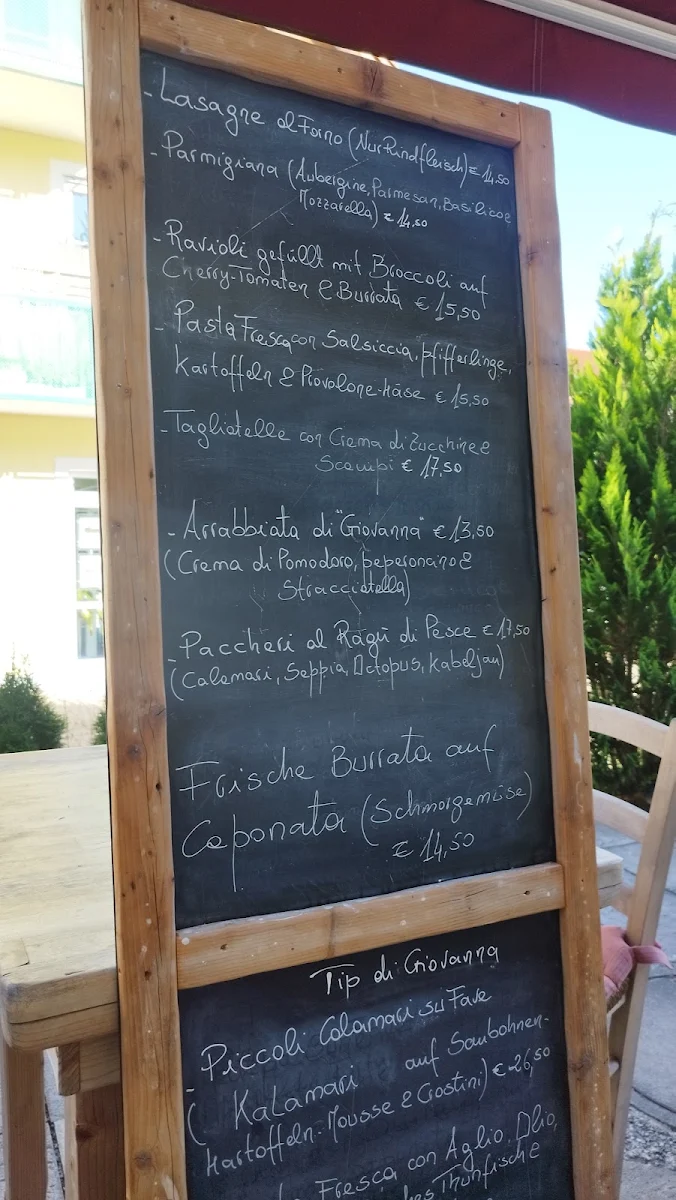 - Lasagne al Forno (Nur Rindfleisch) € 14,50
- Parmigiana (Aubergine, Parmesan, Basilico &
Mozzarella) € 14,50
- Ravioli gefüllt mit Broccoli auf
Cherry-Tomaten & Burrata € 15,50
- Pasta Fresca con Salsiccia, pfifferlinge,
Kartoffeln & Provolone-käse € 15,50
- Tagliatelle con Crema di Zucchine &
Scampi € 17,50
- Arrabbiata di "Giovanna" € 13,50
(Crema di Pomodoro, peperoncino &
Stracciatella)
- Paccheri al Ragù di Pesce € 17,50
(Calamari, Seppia, Octopus, Kabeljau)
Frische Burrata auf
Caponata (Schmorgemüse)
€ 14,50
Tip di Giovanna
- Piccoli Calamari su Fave
( Kalamari auf Saubohnen-
Kartoffeln-Mousse & Crostini) € 26,50
Fresca con Aglio, Olio,
Thunfische